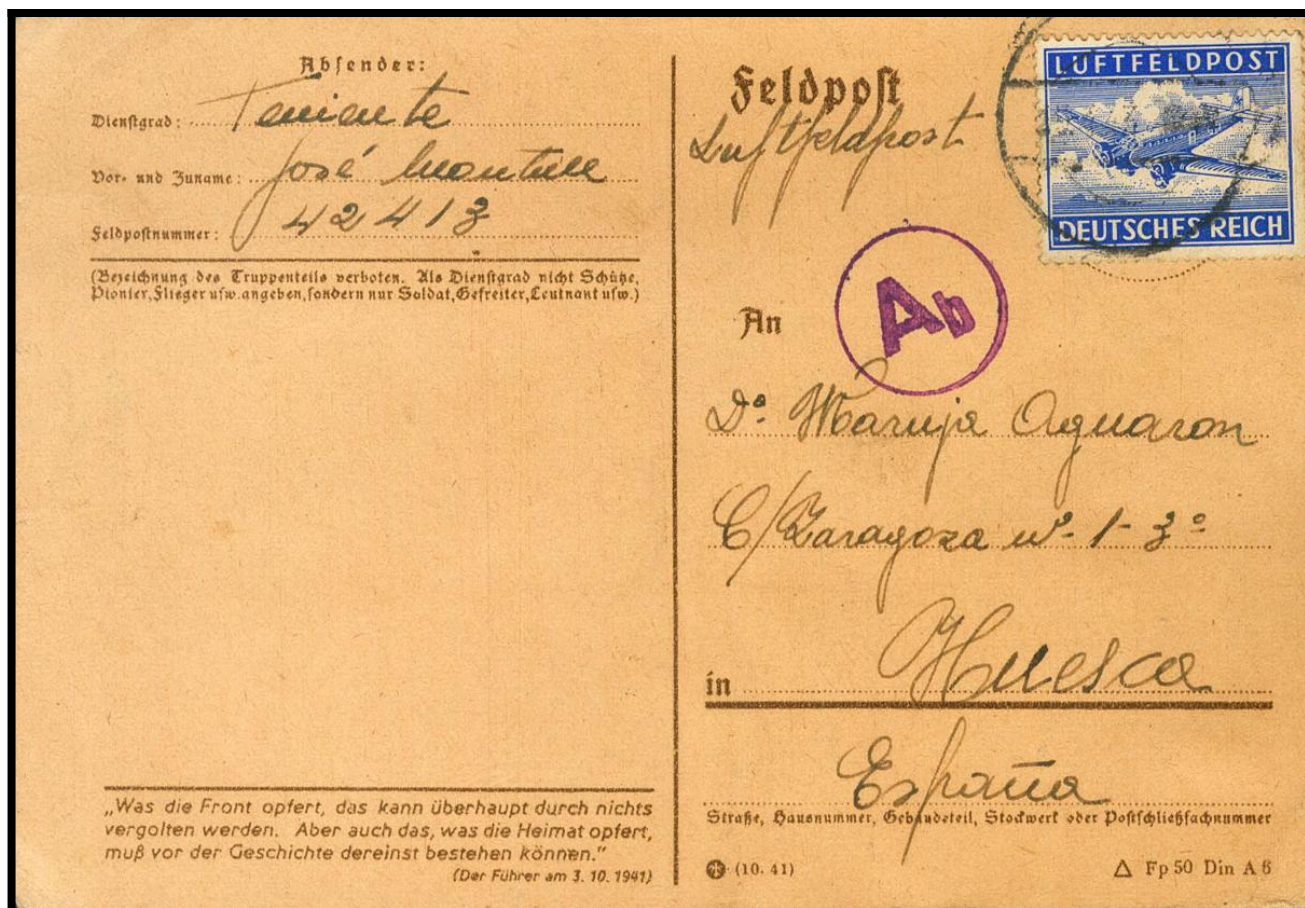 Absender:
Dienstgrad: Teniente
Vor- und Zuname: José
Feldpostnummer: 42413
(Bezeichnung des Truppenteils verboten. Als Dienstgrad nicht Schütze,
Pionier, Flieger usw. angeben, sondern nur Soldat, Gefreiter, Leutnant usw.)
„Was die Front opfert, das kann überhaupt durch nichts
vergolten werden. Aber auch das, was die Heimat opfert,
muß vor der Geschichte dereinst bestehen können.“
(Der Führer am 3. 10. 1941)
Feldpost
Luftfeldpost
LUFTFELDPOST
DEUTSCHES REICH
Ab
An
Dª Maruja Aguaron
C/Zaragoza nº 1-3º
in Huesca
España
Straße, Hausnummer, Gebäudeteil, Stockwerk oder Postschließfachnummer
(10. 41)
Fp 50 Din A 6